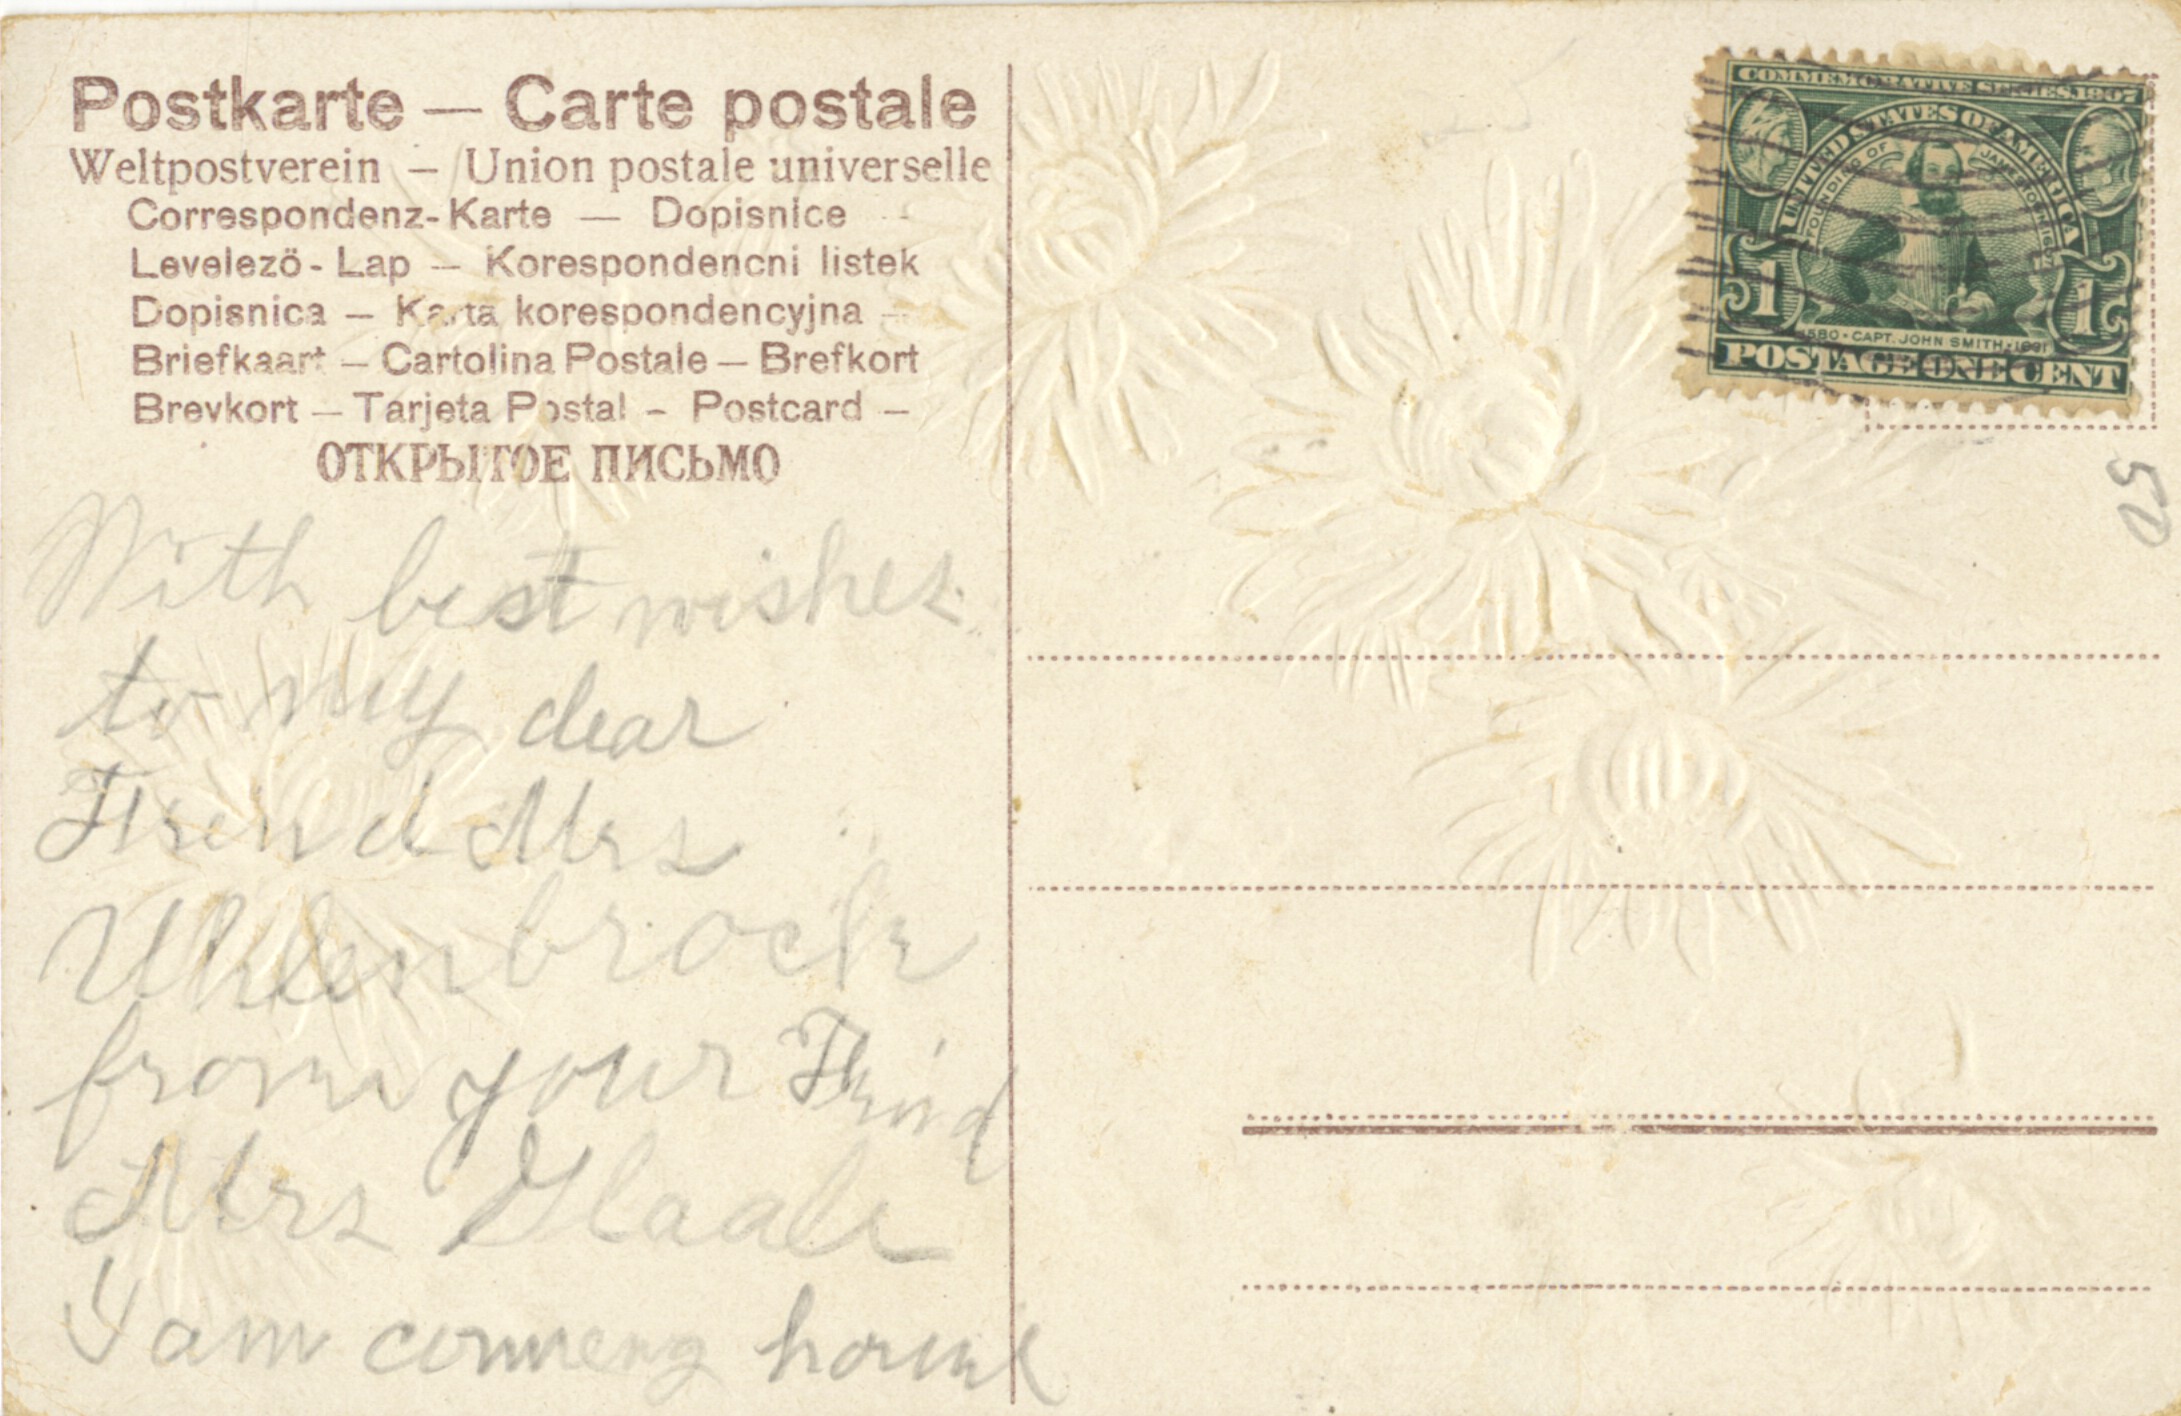 Postkarte — Carte postale
Weltpostverein — Union postale universelle
Correspondenz-Karte — Dopisnice
Levelező-Lap — Korespondencni listek
Dopisnica — Karta korespondencyjna —
Briefkaart — Cartolina Postale — Brefkort
Brevkort — Tarjeta Postal — Postcard —
ОТКРЫТОЕ ПИСЬМО
With best wishes
to my dear
Frend Mrs
Uhlenbrock
from your Frind
Mrs
I am comeng home
COMMEMORATIVE SERIES 1907
UNITED STATES OF AMERICA
FOUNDING OF JAMESTOWN 1607
1 1
1580 · CAPT. JOHN SMITH · 1631
POSTAGE ONE CENT
50